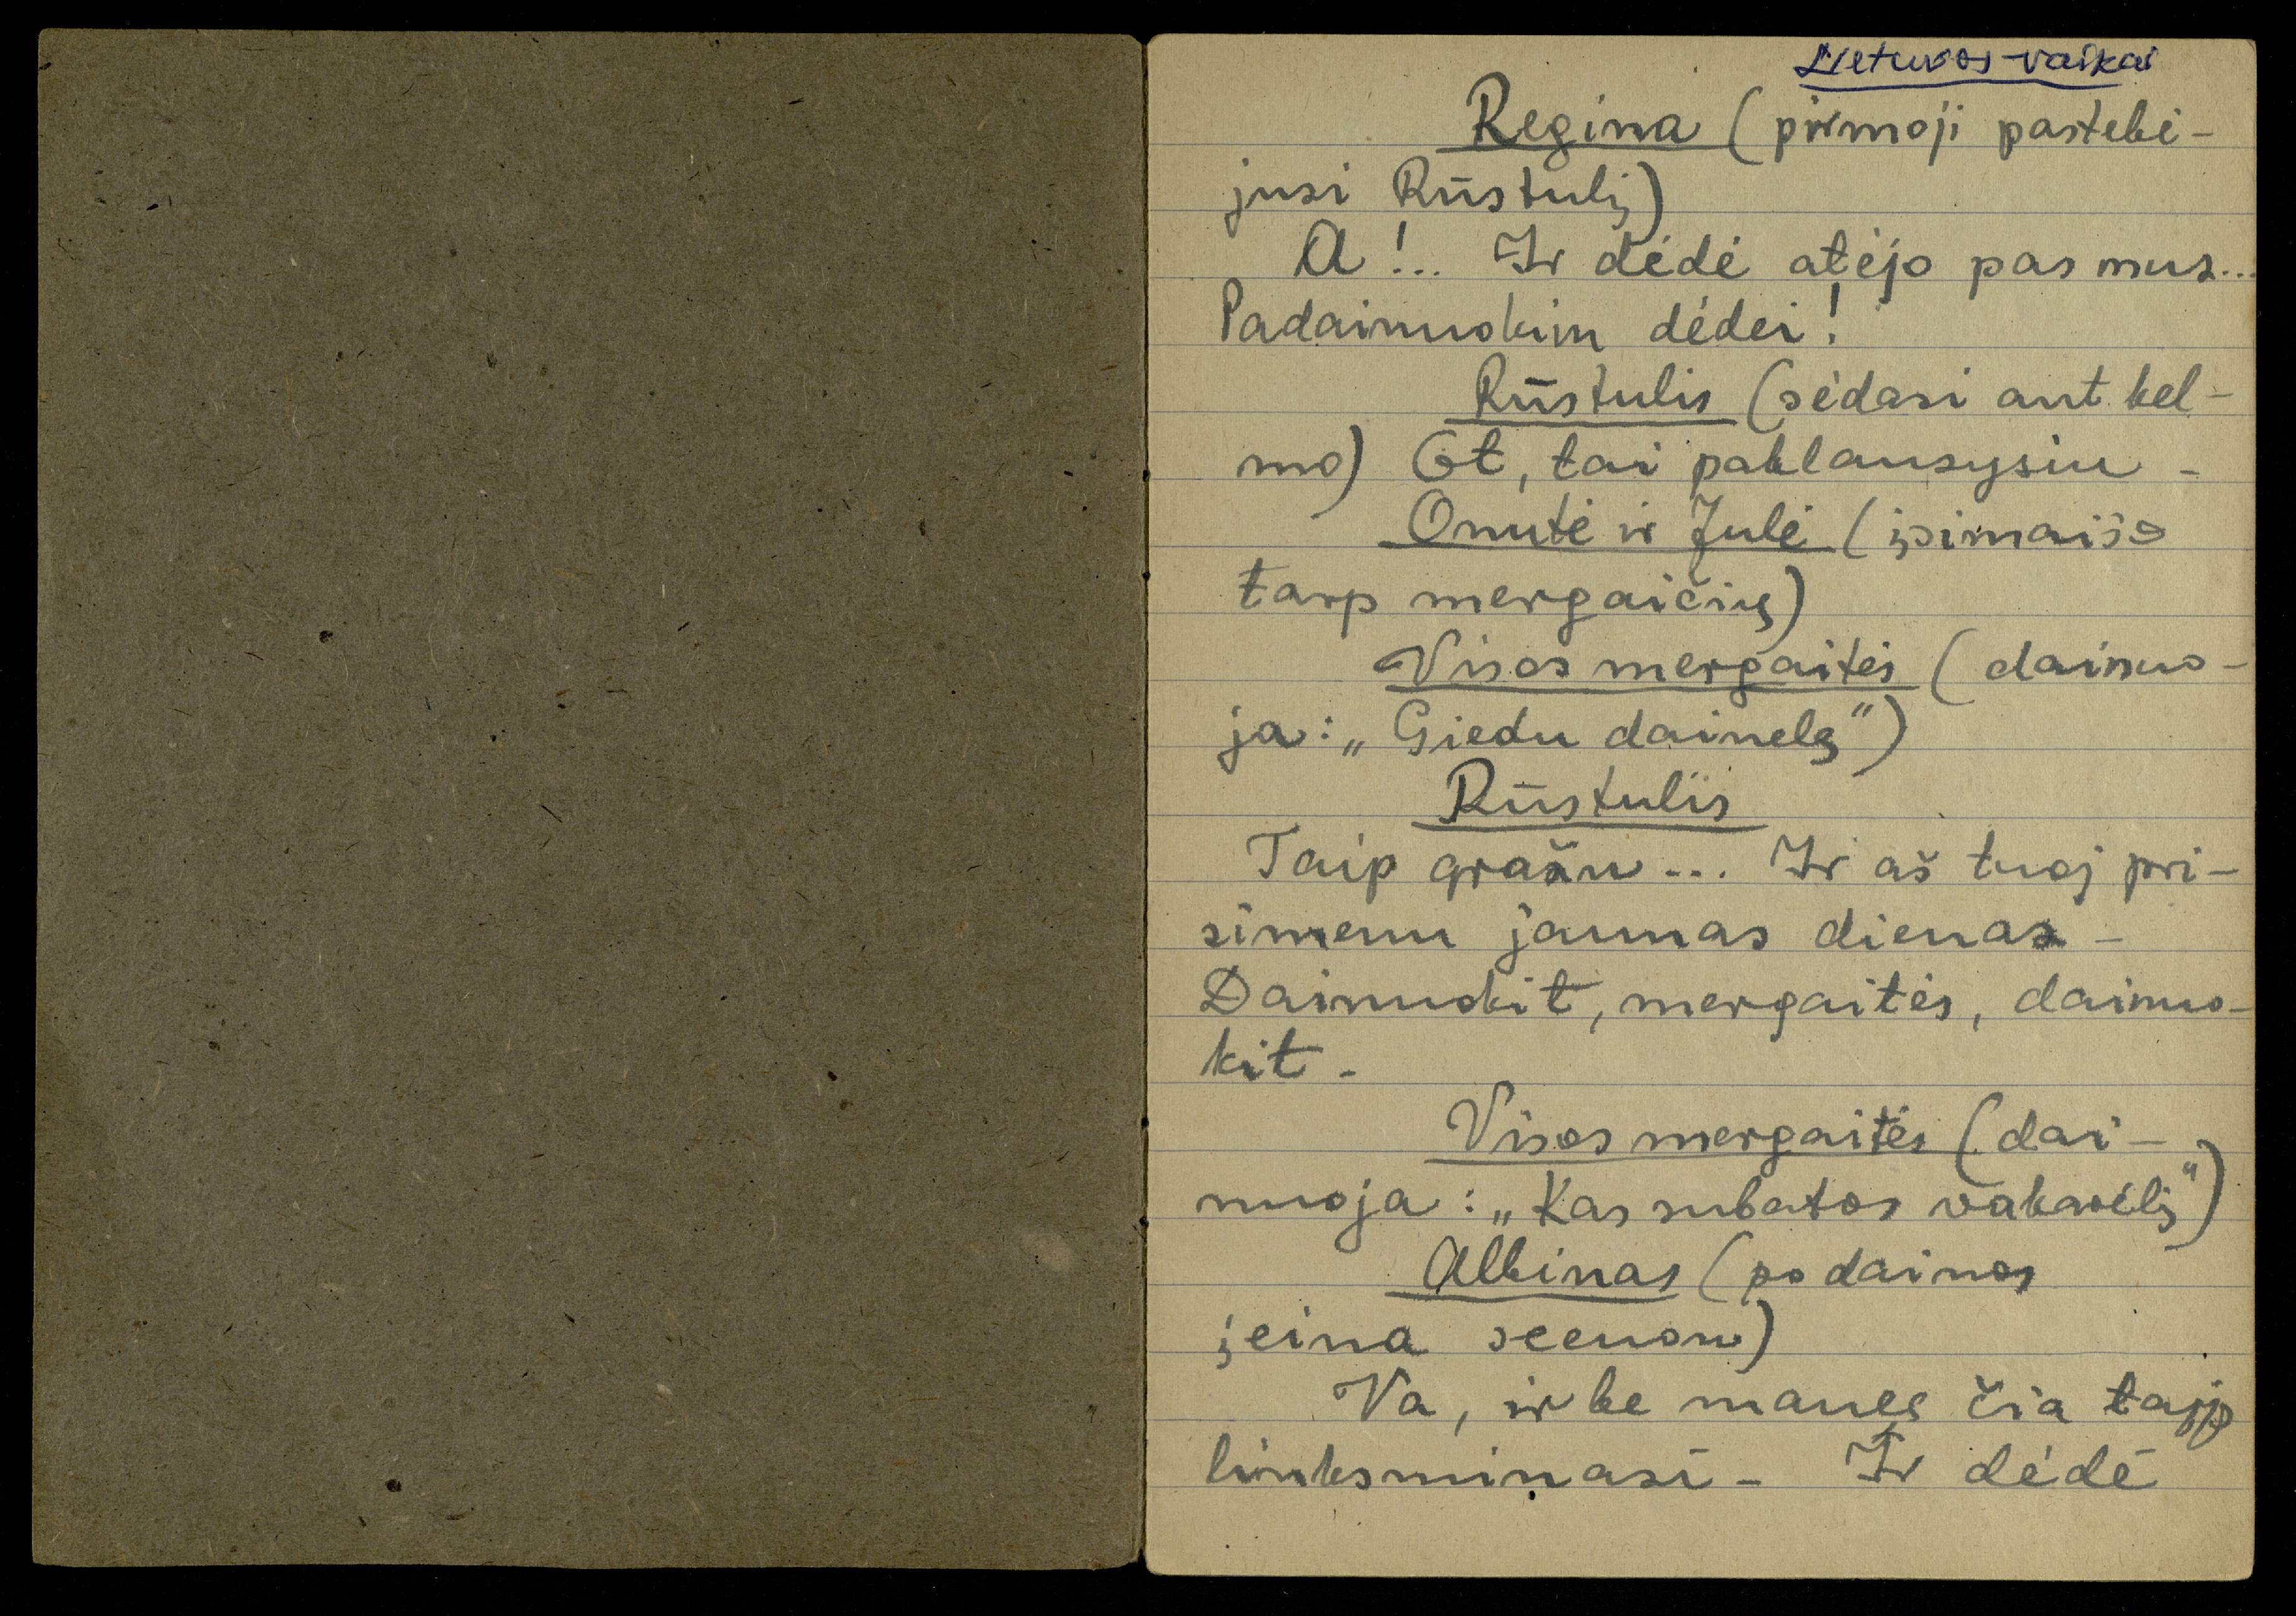 Lietuvos vaikai
Regina (pirmoji pastebė-
jusi Rūstulį)
A!.. Ir dėdė atėjo pas mus...
Padainuokim dėdei!
Rūstulis (sėdasi ant kel-
mo) Ot, tai paklausysiu -
Onutė ir Julė (įsimaišo
tarp mergaičių)
Visos mergaitės (dainuo-
ja: „Giedu dainelę")
Rūstulis
Taip gražu... Ir aš tuoj pri-
simenu jaunas dienas -
Dainuokit, mergaitės, dainuo-
kit -
Visos mergaitės (dai-
nuoja: „Kas subatos vakarėlį")
Albinas (po dainos
įeina scenon)
Va, ir be manęs čia taip
linksminasi - Ir dėdė